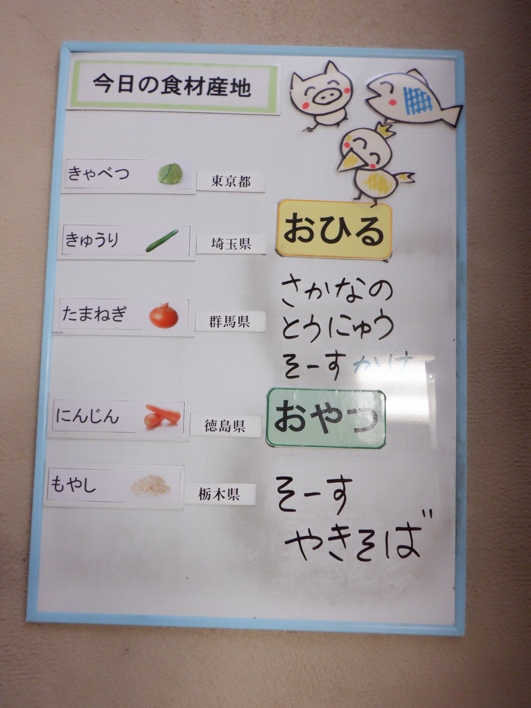 今日の食材産地
きゃべつ 東京都
きゅうり 埼玉県
たまねぎ 群馬県
にんじん 徳島県
もやし 栃木県
おひる
さかなの
とうにゅう
そーすかけ
おやつ
そーす
やきそば